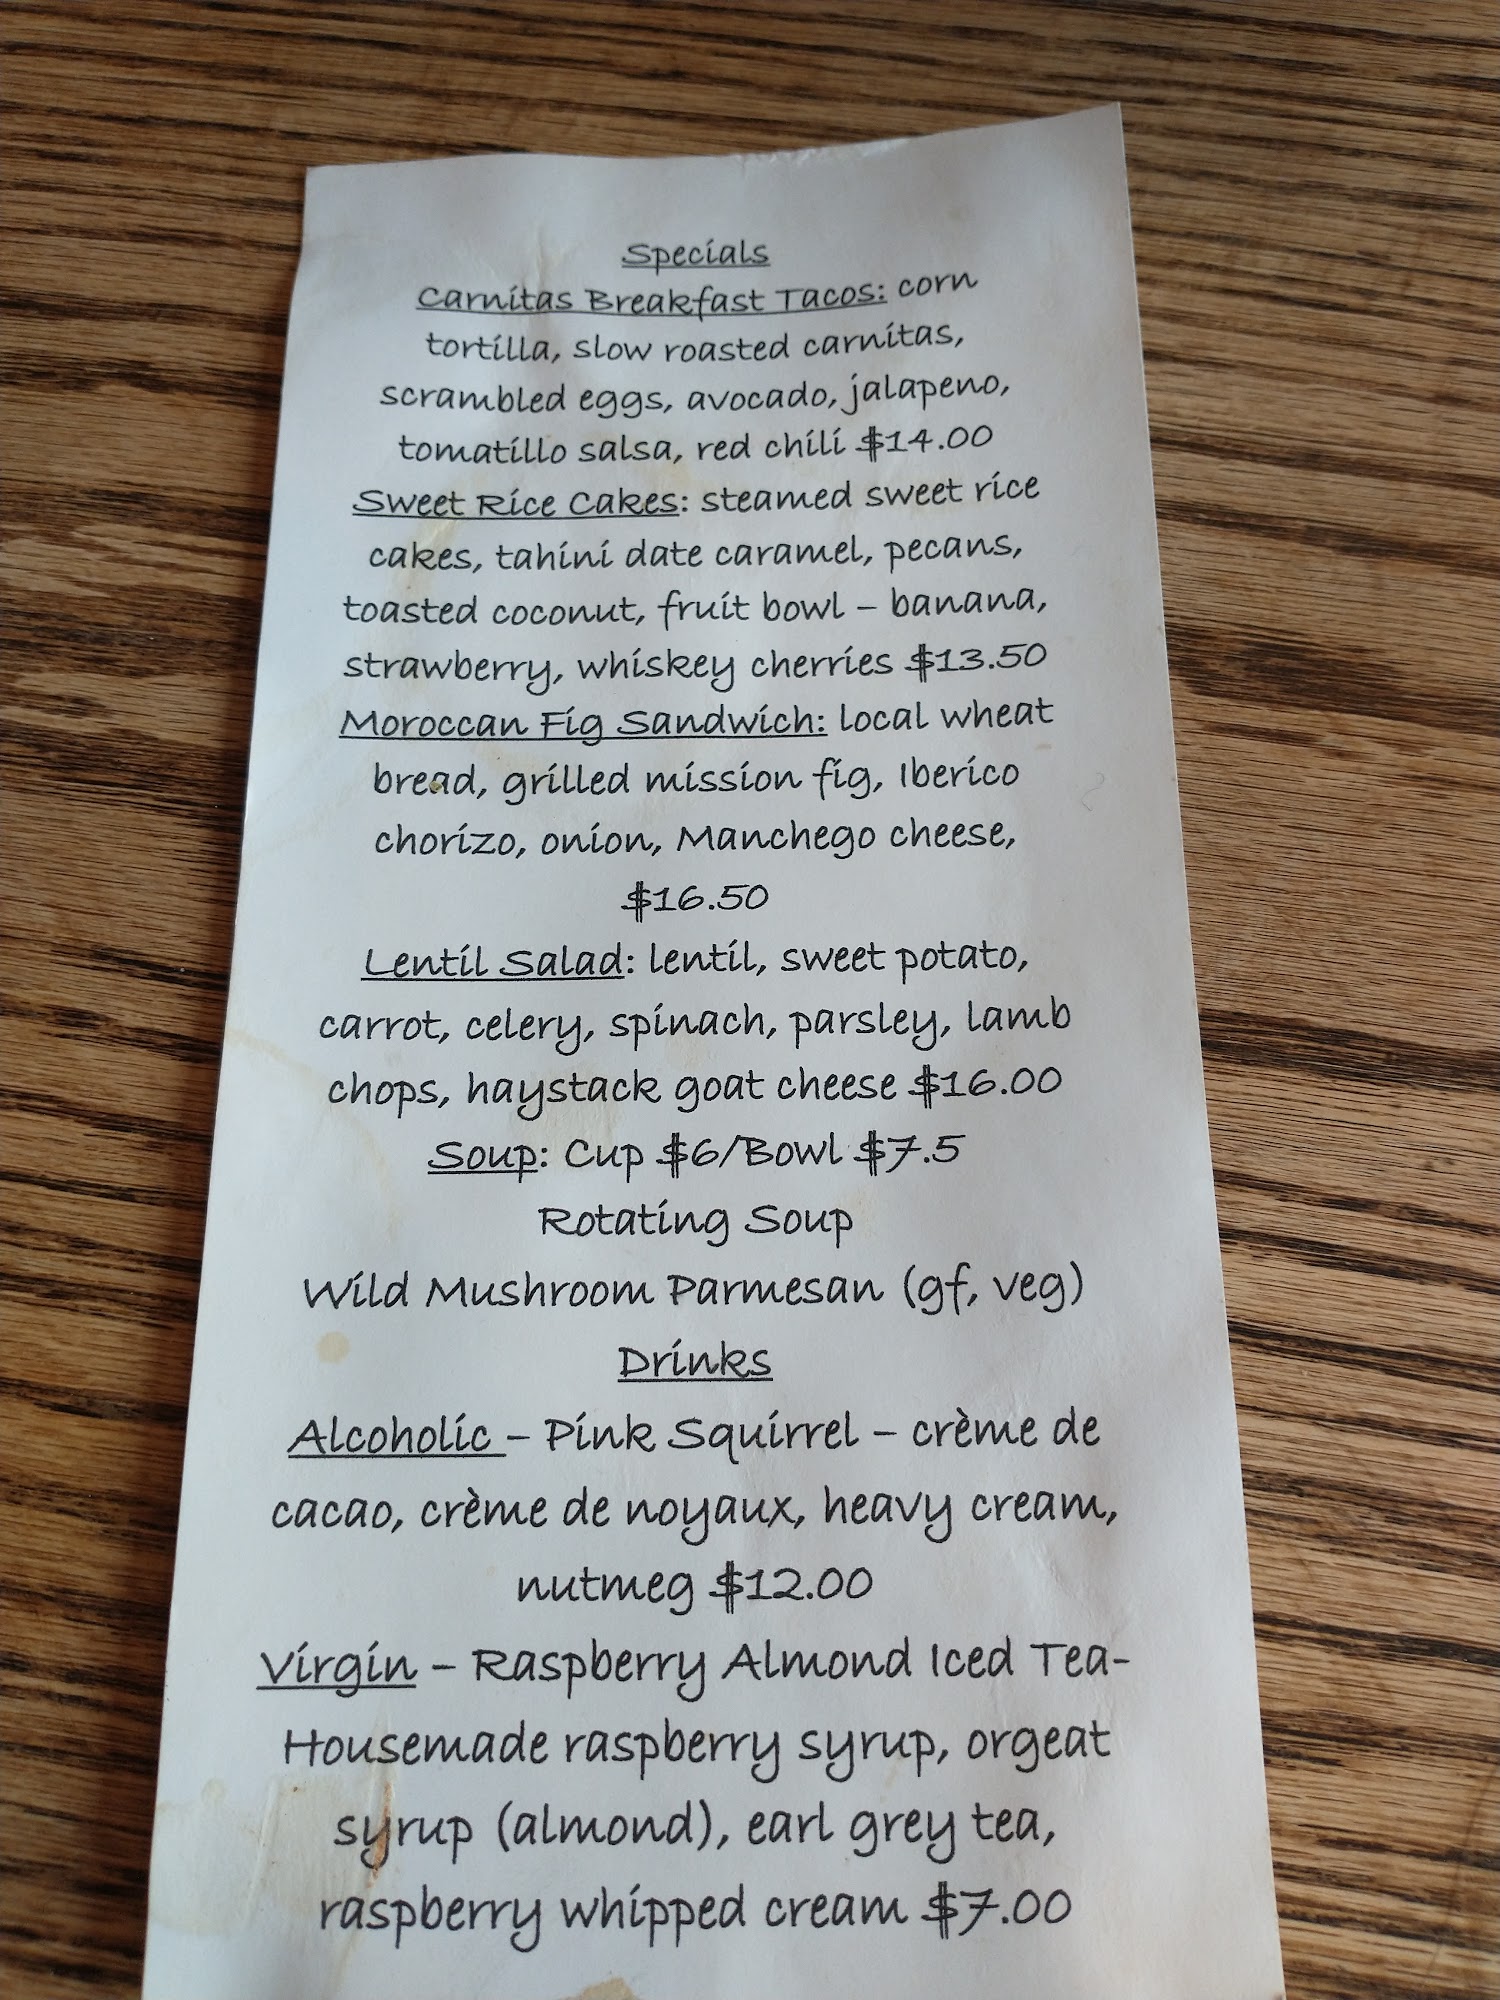 Specials
Carnitas Breakfast Tacos: corn
tortilla, slow roasted carnitas,
scrambled eggs, avocado, jalapeno,
tomatillo salsa, red chili $14.00
Sweet Rice Cakes: steamed sweet rice
cakes, tahini date caramel, pecans,
toasted coconut, fruit bowl – banana,
strawberry, whiskey cherries $13.50
Moroccan Fig Sandwich: local wheat
bread, grilled mission fig, Iberico
chorizo, onion, Manchego cheese,
$16.50
Lentil Salad: lentil, sweet potato,
carrot, celery, spinach, parsley, lamb
chops, haystack goat cheese $16.00
Soup: Cup $6/Bowl $7.5
Rotating Soup
Wild Mushroom Parmesan (gf, veg)
Drinks
Alcoholic – Pink Squirrel – crème de
cacao, crème de noyaux, heavy cream,
nutmeg $12.00
Virgin – Raspberry Almond Iced Tea-
Housemade raspberry syrup, orgeat
syrup (almond), earl grey tea,
raspberry whipped cream $7.00